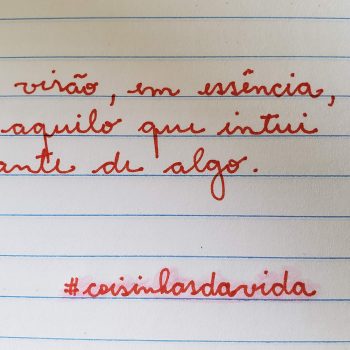 visão, em essência,
aquilo que intui
ante de algo.
#coisinhasdavida